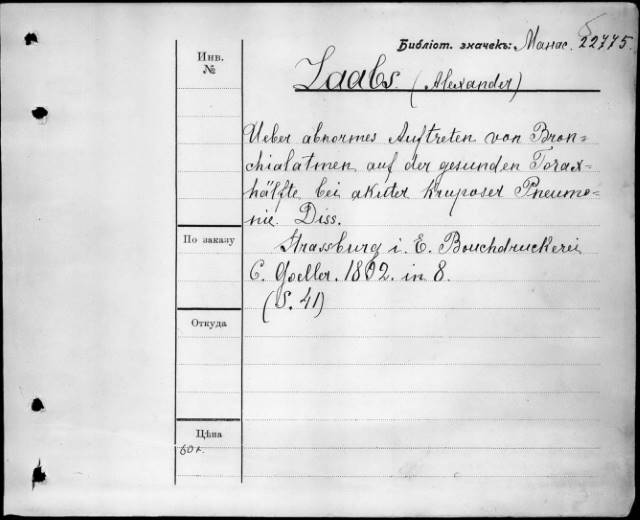 Библіот. значекъ: Манас. 22775.
Инв.
№
Laabs. (Alexander)
Ueber abnormes Auftreten von Bron=
chialatmen auf der gesunden Torax=
hälfte bei akuter kruposer Pneumo=
nie. Diss.
По заказу
Strassburg i. E. Bouchdruckerei
C. Goeller. 1892. in 8.
(S. 41)
Откуда
Цѣна
60 к.